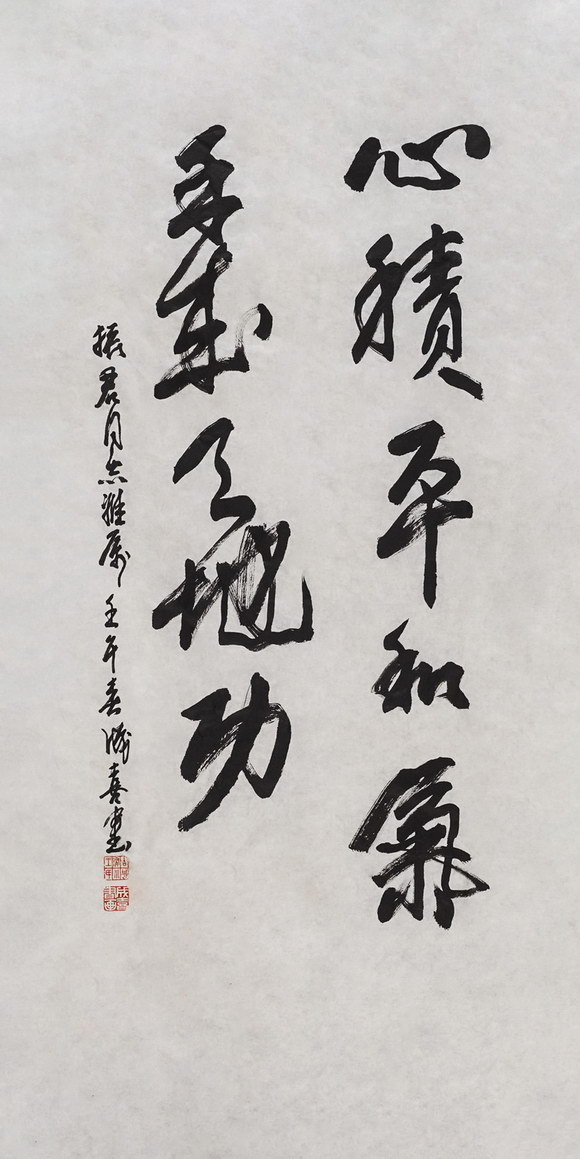 心積平和氣
手成天地功
振君同志雅属 壬午春